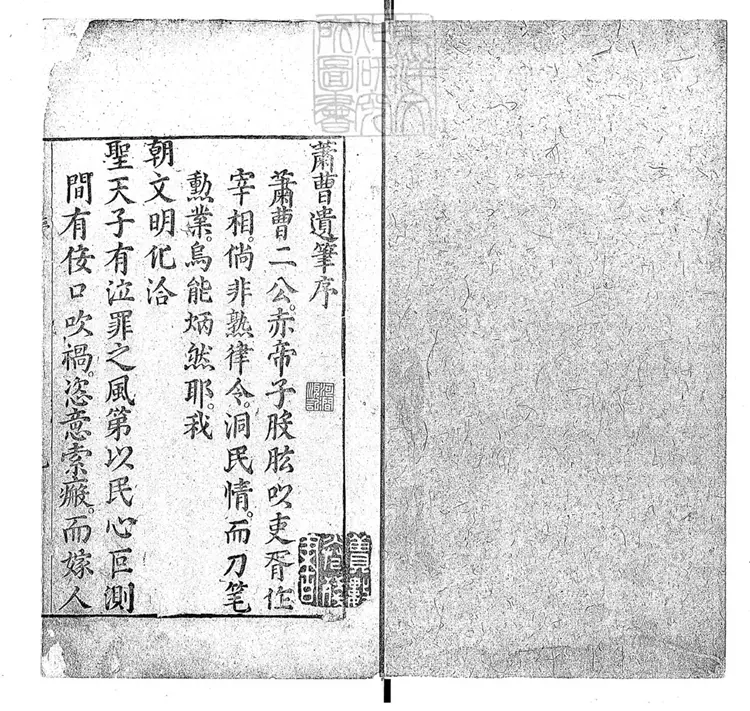 東洋文化研究所圖書
蕭曹遺筆序
蕭曹二公。赤帝子股肱以吏胥作
宰相。倘非熟律令。洞民情。而刀笔
勳業。烏能炳然耶。我
朝文明化洽
聖天子有泣罪之風第以民心叵測
間有佞口吹禍。恣意索瘢。而嫁人